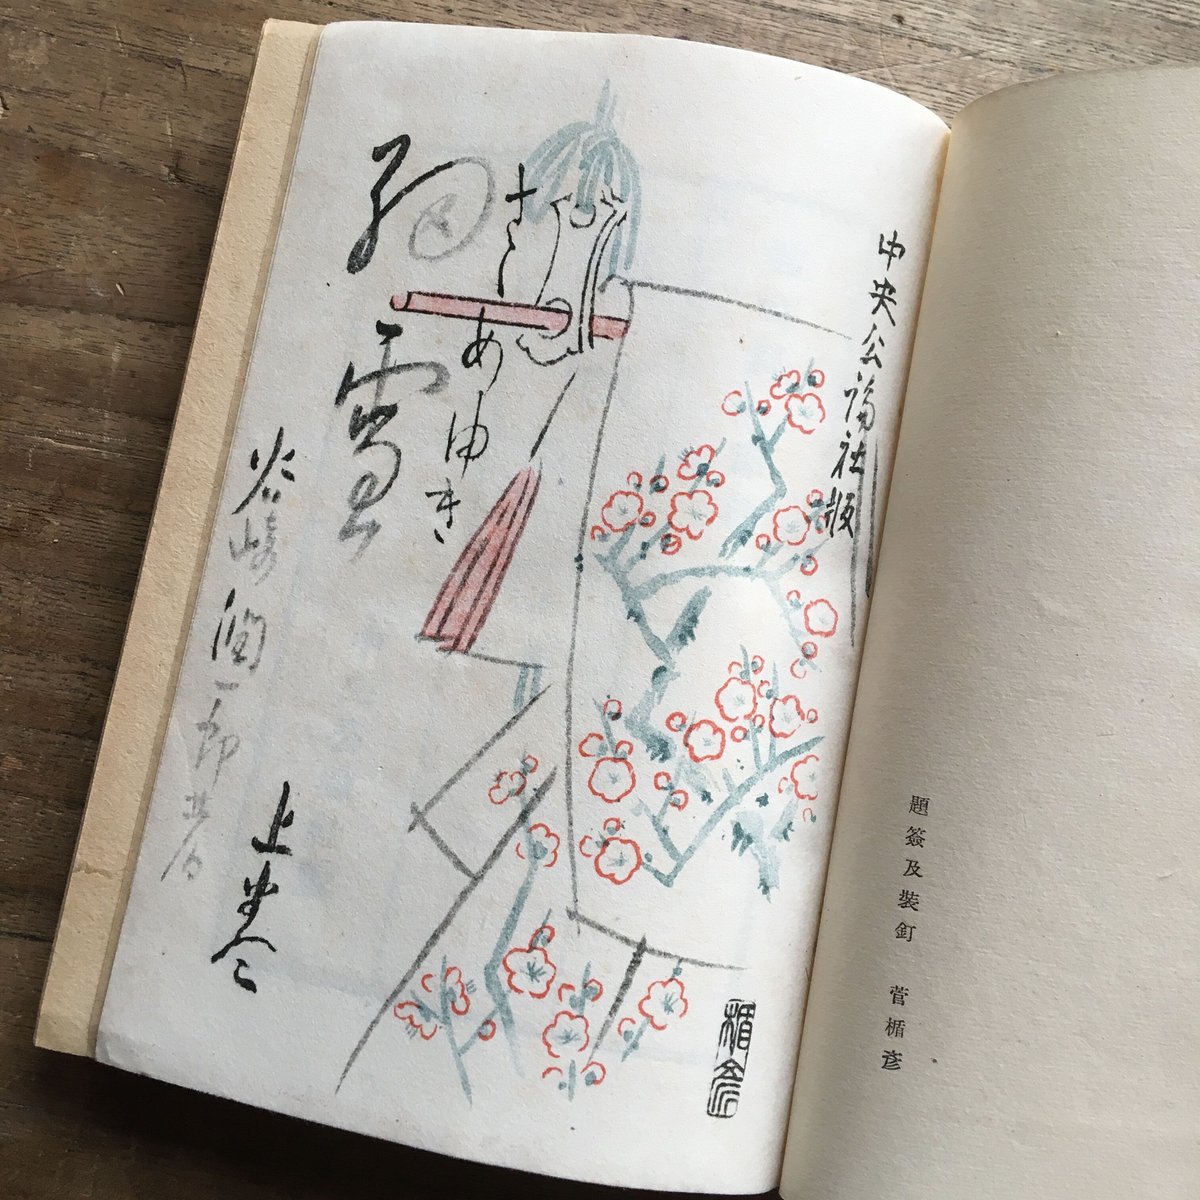 題簽及裝釘 菅楯彦
中央公論社版
さゝめゆき
細雪
谷崎潤一郎著
上巻
楯彦